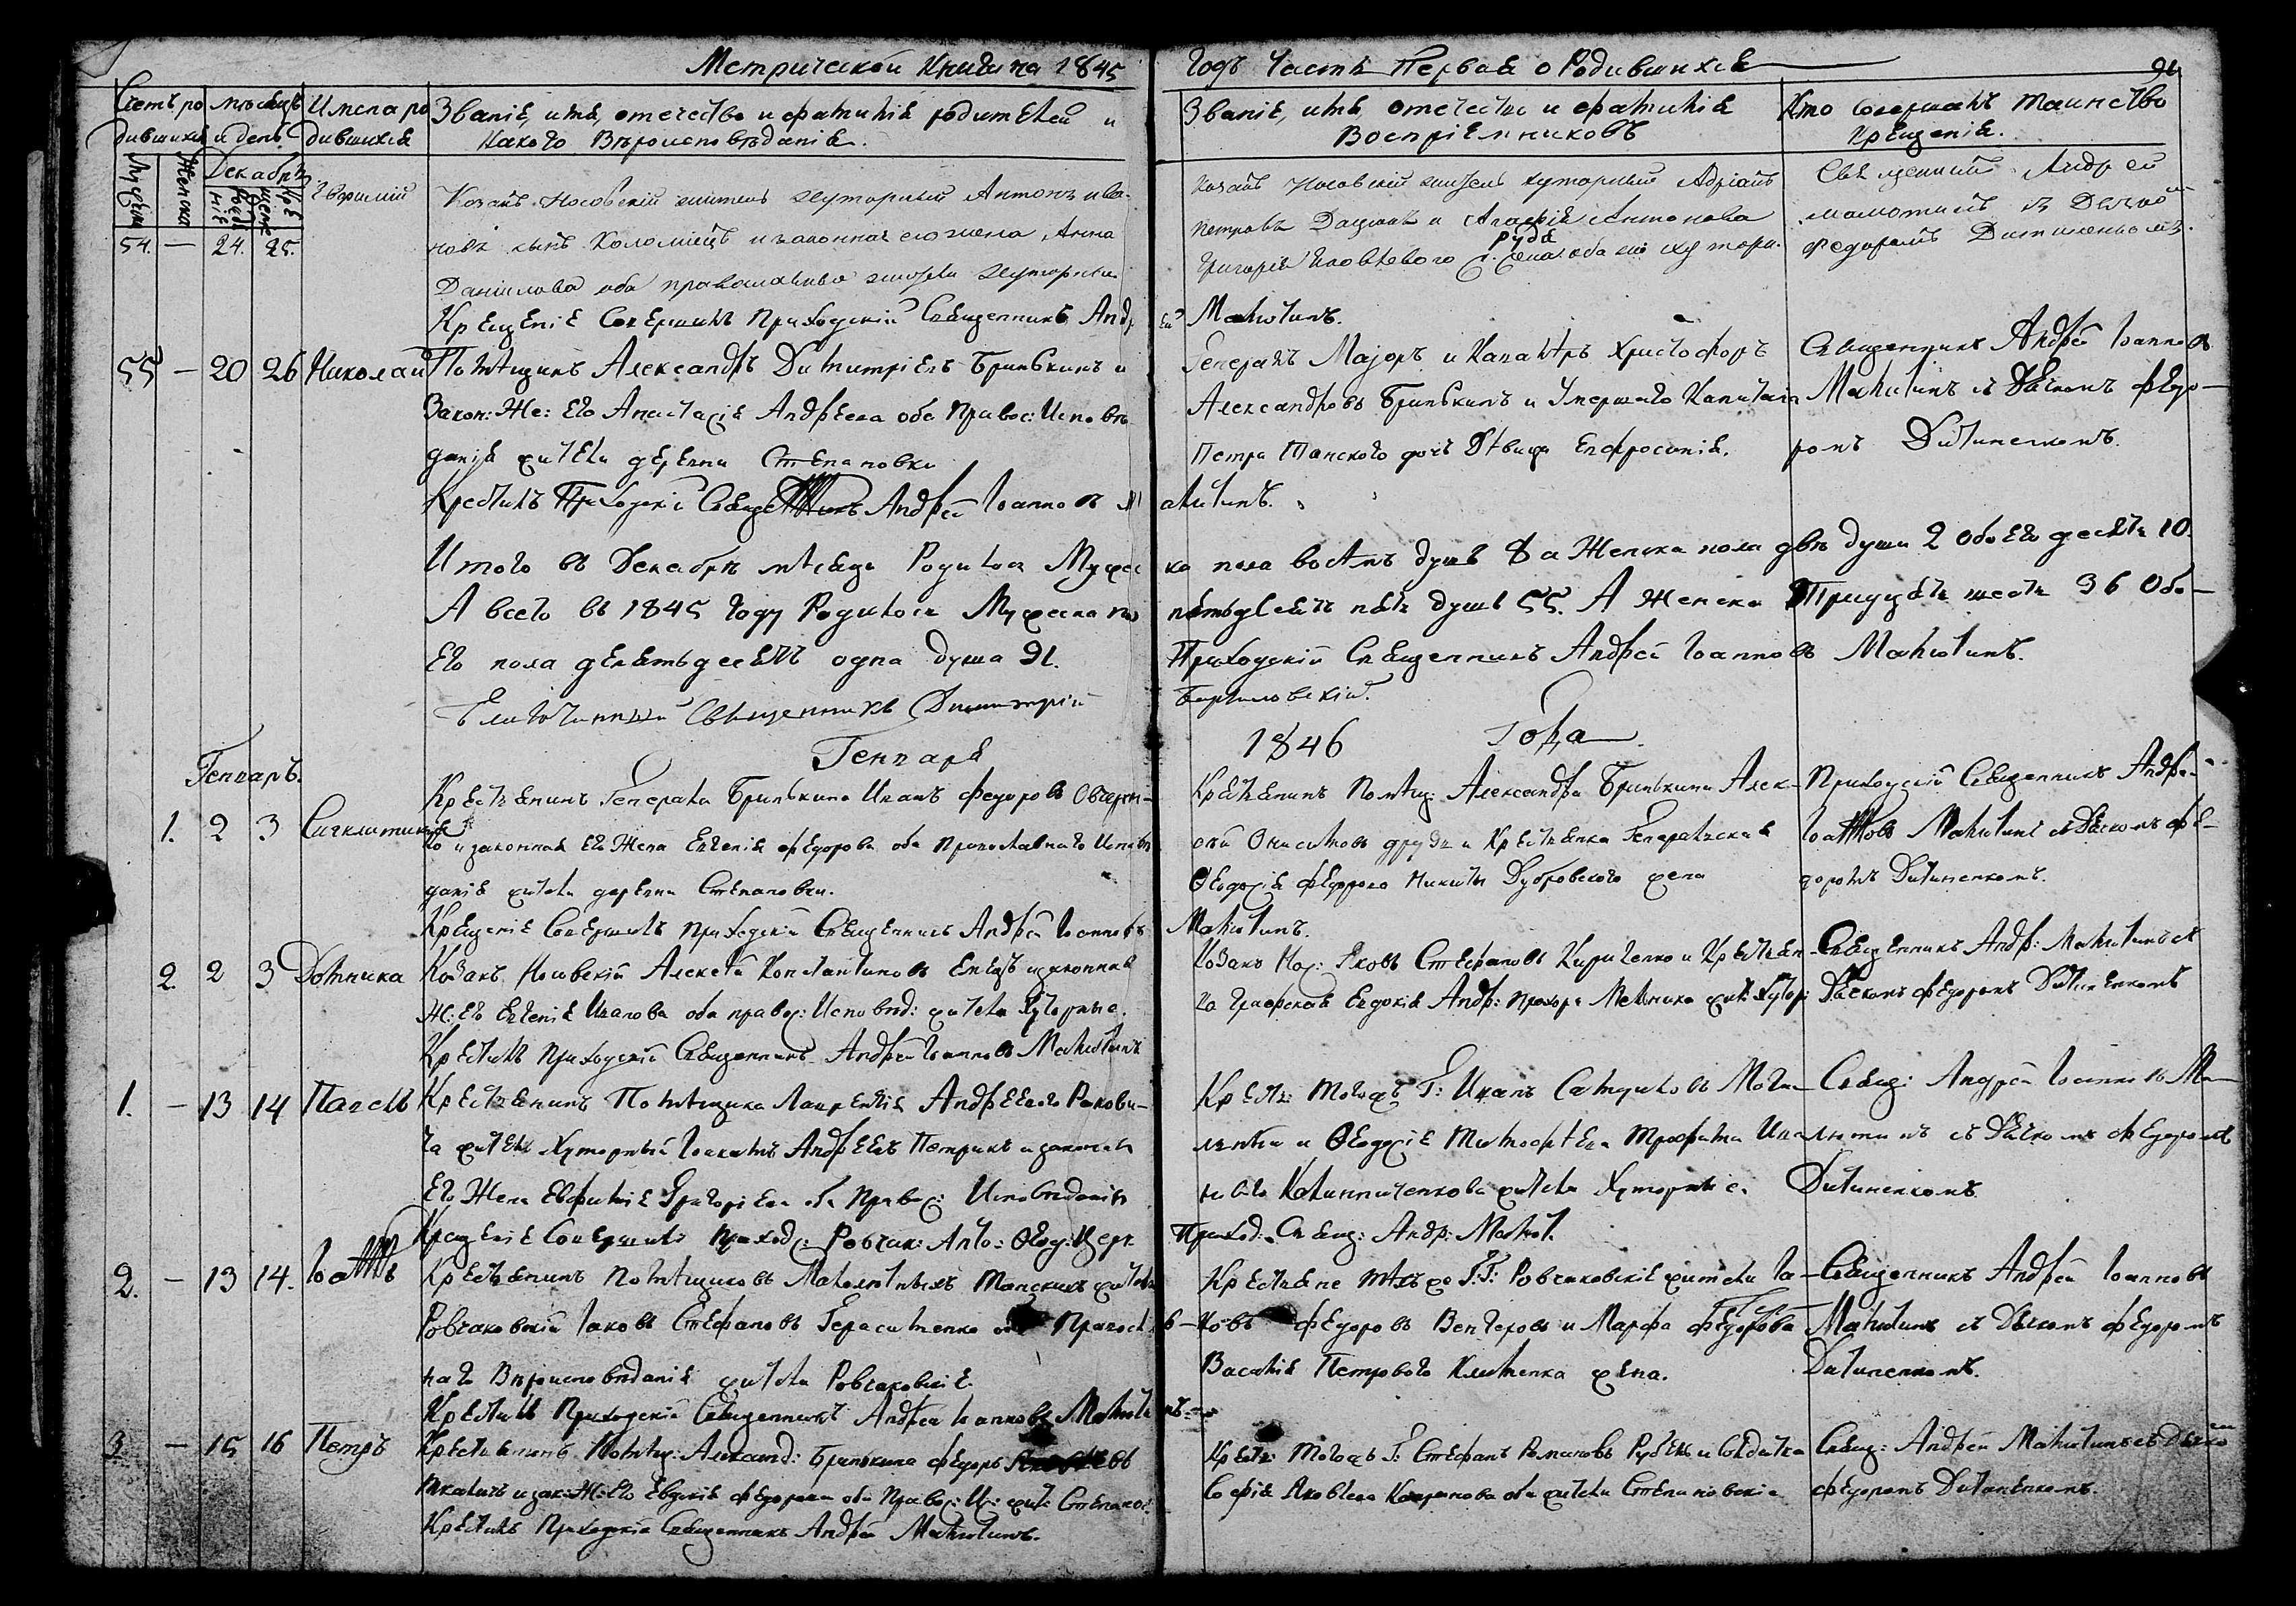 Метрической Книги на 1845
Годъ Часть Первая о Родившихся
91
Счетъ родившихся
мѣсяцъ и день
Имена родившихся
Званіе, имя, отечество и фамилія родителей и
какого Вѣроисповѣданія.
Званіе, имя, отечество и фамилія
Воспріемниковъ
Кто совершалъ таинство
Крещенія.
Мужеска
Женска
Декабрь
рожденіе
крещеніе
54. — 24. 25.
Козакъ Носовскій житель хуторный Антонъ Ива-
новъ сынъ Коломіецъ и законная его жена Анна
Даніилова оба православніе жители хуторніи
Крещеніе Совершилъ Приходскій Священникъ Андрей Малютинъ.
Козакъ Носовскій житель хуторный Адріанъ
Петровъ Даценко и Агафія Антонова
Руда
Григорія Яковлевого жена оба
Священникъ Андрей
Малютинъ съ Дячкомъ
Федоромъ Дитиненкомъ.
55 — 20 26 Николай
Помѣщикъ Александръ Димитріевъ Бринькинъ и
Закон: Же: Его Анастасія Андреева оба Правос: Исповѣ-
данія жители деревни Степановки
Крестилъ Приходскій Священникъ Андрей Іоанновъ Малютинъ.
Генералъ Маіоръ и Кавалѣръ Христофоръ
Александровъ Бринькинъ и Умершаго Капитана
Петра Танского дочь Дѣвица Евфросинія.
Священникъ Андрей Іоанновъ
Малютинъ съ Дячкомъ Федо-
ромъ Дитиненкомъ.
Итого въ Декабрѣ мѣсяцѣ Родилося Мужеска пола восѣмъ душъ 8 а Женска пола двѣ души 2 Обоего десять 10.
А всего въ 1845 году Родилося Мужеска пола пятьдесятъ пять душъ 55. А Женска Тридцать шесть 36 Обо-
его пола девятьдесятъ одна душа 91.
Приходскій Священникъ Андрей Іоанновъ Малютинъ.
Благочинный Священникъ Димитрій
Генваря
1846 Года
Генварь.
1. 2 3 Сигклитикія
Крестьянинъ Генерала Бринькина Иванъ Федоровъ
го и законная Его Жена Евгенія Федорова оба Православнаго Исповѣ-
данія жители деревни Степановки.
Крещеніе Совершилъ Приходскій Священникъ Андрей Іоанновъ Малютинъ.
Крестьянинъ Помѣщ: Александра Бринькина Алек-
сѣй Онисимовъ и Крестьянка Генеральская
Феодосія Федорова Никиты Дубровского жена
Приходскій Священникъ Андрей
Іоанновъ Малютинъ съ Дячкомъ Фе-
доромъ Дитиненкомъ.
2. 2 3 Домника
Козакъ Носовскій Алексѣй Константиновъ и законная
Ж: его Евгенія Иванова оба правос: Исповѣд: жители Хуторные.
Крестилъ Приходскій Священникъ Андрей Іоанновъ Малютинъ
Козакъ Нос: Яковъ Стефановъ Кириченко и Крестьян-
ка Графская Евдокія Андр: Прохора Мельника жит: Хутор:
Священникъ Андр: Малютинъ съ
Дячкомъ Федоромъ Дитиненкомъ
1. — 13 14 Павелъ
Крестьянинъ Помѣщика Лаврентія Андреевого Ракови-
ча житель Хуторный Іоакимъ Андреевъ Петрикъ и законная
Его Жена Евфимія Григоріева оба Правос: Исповѣданія
Крещеніе Совершилъ Приход: Ровчак: Анто: Феод: Церк: Приход: Свящ: Андр: Малют.
Крест: Тогожъ Г: Иванъ Самуиловъ
и Феодосія Тимофѣева Трофима Ива-
нового Калиниченкова жители Хуторніе.
Свящ: Андрей Іоанновъ Ма-
лютинъ съ Дячкомъ Федоромъ
Дитиненкомъ.
2. — 13 14. Іоаннъ
Крестьянинъ Помѣщиковъ Маколютныхъ Танскихъ житель
Ровчаковскій Іаковъ Стефановъ Герасименко Православ-
наго Вѣроисповѣданія жители Ровчаковскіе.
Крестилъ Приходскій Священникъ Андрей Іоанновъ Малютинъ
Крестьяне тѣхъ же Г:Г: Ровчаковскіе жители Іа-
ковъ Федоровъ Венгеровъ и Марфа Федорова
Василія Петрового Клименка жена.
Священникъ Андрей Іоанновъ
Малютинъ съ Дячкомъ Федоромъ
Дитиненкомъ.
3. — 15 16 Петръ
Крестьянинъ Помѣщ: Александ: Бринькина Федоръ
Ткачъ и зак: Ж: Его Евдокія Федорова оба Правос: Ис: жит: Степанов:
Крестилъ Приходскій Священникъ Андрей Малютинъ.
Крест: Тогожъ Г: Стефанъ Романовъ Рубель и Солдатка
Софія Яковлева оба жители Степановскіе
Свящ: Андрей Малютинъ съ Дячкомъ
Федоромъ Дитиненкомъ.